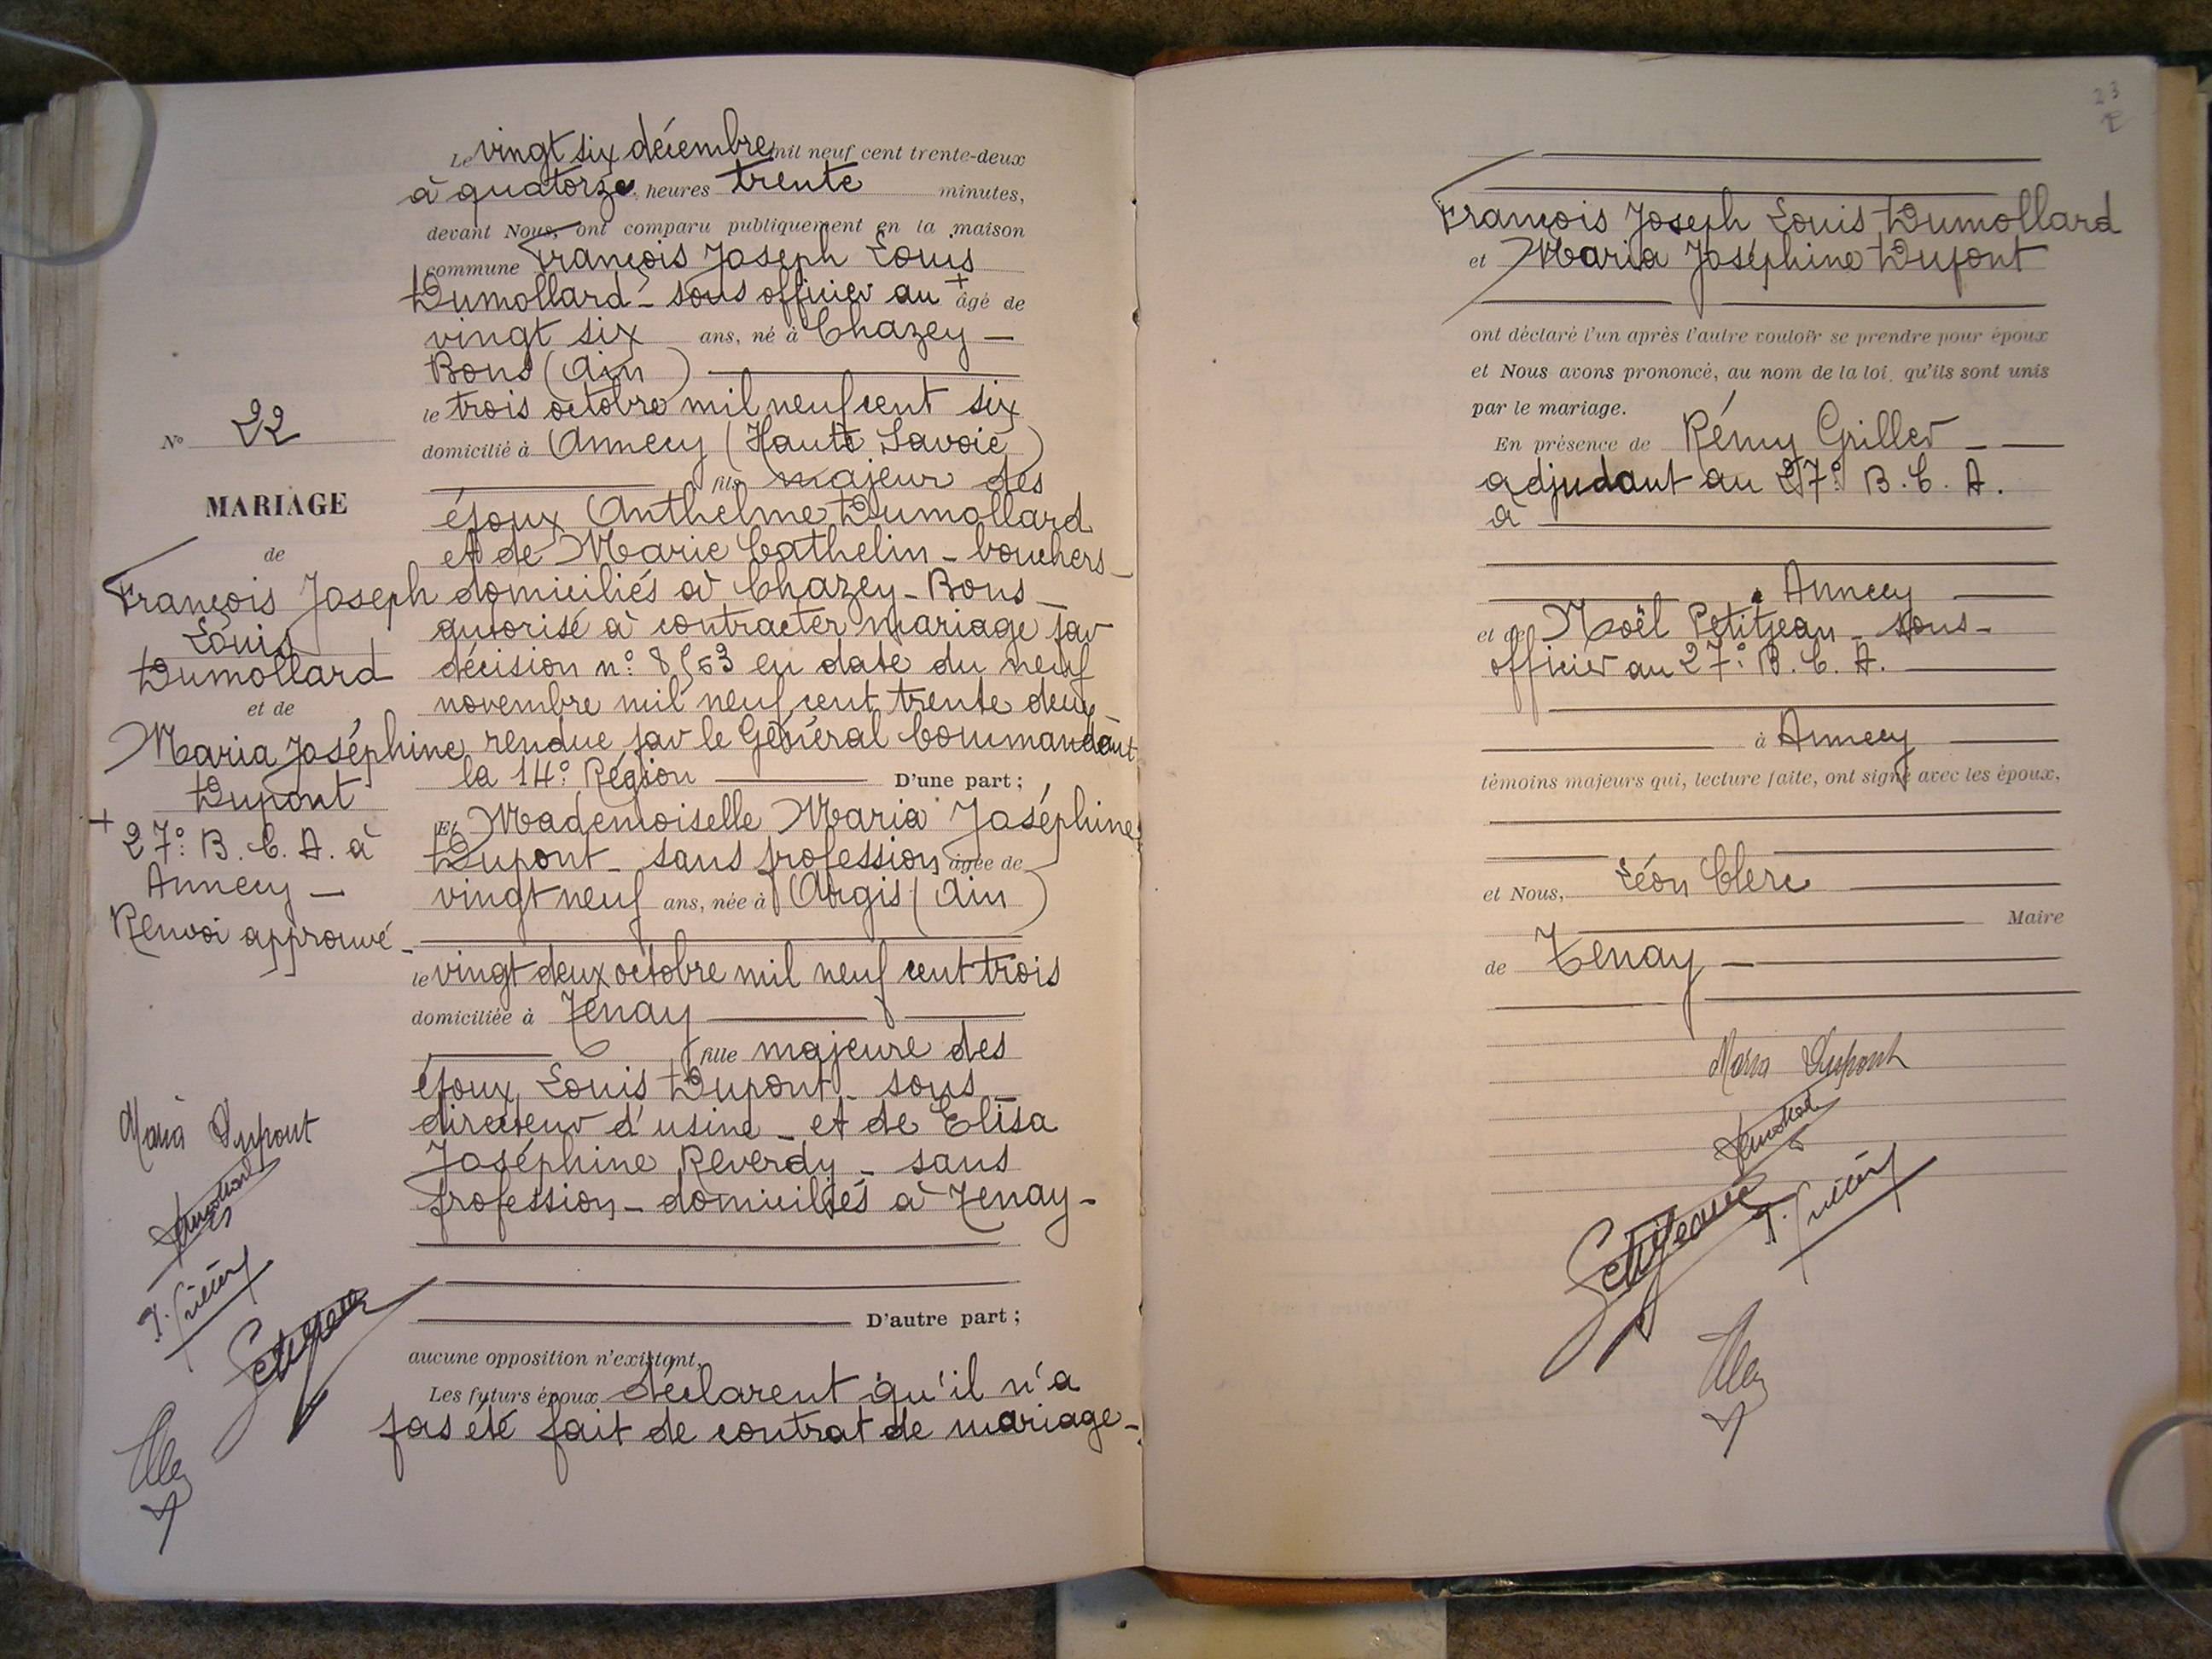 N° 22
MARIAGE
de
François Joseph
Louis
Dumollard
et de
Maria Joséphine
Dupont
+
27e B. C. A. à
Annecy —
Renvoi approuvé -
Maria Dupont
Dumollard
Le vingt six décembre mil neuf cent trente-deux
à quatorze heures trente minutes,
devant Nous, ont comparu publiquement en la maison
commune François Joseph Louis
Dumollard - sous officier au + âgé de
vingt six ans, né à Chazey —
Bons (Ain)
le trois octobre mil neuf cent six
domicilié à Annecy (Haute Savoie)
fils majeur des
époux Anthelme Dumollard
et de Marie Cathelin - bouchers -
domiciliés à Chazey - Bons -
autorisé à contracter mariage par
décision n° 8563 en date du neuf
novembre mil neuf cent trente deux
rendue par le Général Commandant
la 14e Région D'une part ;
Et Mademoiselle Maria Joséphine
Dupont - sans profession âgée de
vingt neuf ans, née à Argis (Ain)
le vingt deux octobre mil neuf cent trois
domiciliée à Tenay
fille majeure des
époux Louis Dupont - sous
directeur d'usine - et de Elisa
Joséphine Reverdy - sans
profession - domiciliés à Tenay -
D'autre part ;
aucune opposition n'existant,
Les futurs époux déclarent qu'il n'a
pas été fait de contrat de mariage -
23
François Joseph Louis Dumollard
et Maria Joséphine Dupont
ont déclaré l'un après l'autre vouloir se prendre pour époux
et Nous avons prononcé, au nom de la loi, qu'ils sont unis
par le mariage.
En présence de Rémy Griller -
adjudant au 27e B. C. A.
à
Annecy
et de Noël Petitjean - sous-
officier au 27e B. C. A.
à Annecy
témoins majeurs qui, lecture faite, ont signé avec les époux,
et Nous, Léon Clerc
Maire
de Tenay —
Maria Dupont
Dumollard
Petitjean